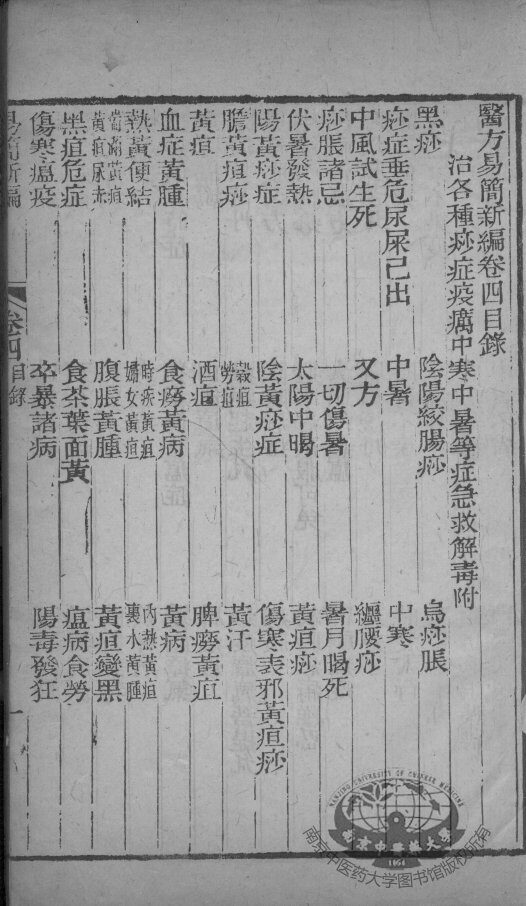 醫方易簡新編卷四目錄
治各種痧症疫癘中寒中暑等症急救解毒附
黑痧　陰陽絞腸痧　烏痧脹
痧症垂危尿屎已出　中暑　中寒
中風試生死　又方　纒腰痧
痧脹諸忌　一切傷暑　暑月暍死
伏暑發熱　太陽中暍　黃疸痧
陽黃痧症　陰黃痧症　傷寒表邪黃疸痧
膽黃疸痧　穀疸　勞疸　黃汗
黃疸　酒疸　脾癆黃疸
血症黃腫　食癆黃病　黃病
熱黃便結　時疾黃疸　孀女黃疸　內熱黃疸　裏水黃腫
黃疸尿赤　腹脹黃腫　黃疸變黑
黑疸危症　食茶葉面黃　瘟病食勞
傷寒瘟疫　卒暴諸病　陽毒發狂
易簡新編　卷四目錄　一
南京中醫藥大學
NANJING UNIVERSITY OF CHINESE MEDICINE
1954
南京中医药大学图书馆版权所有